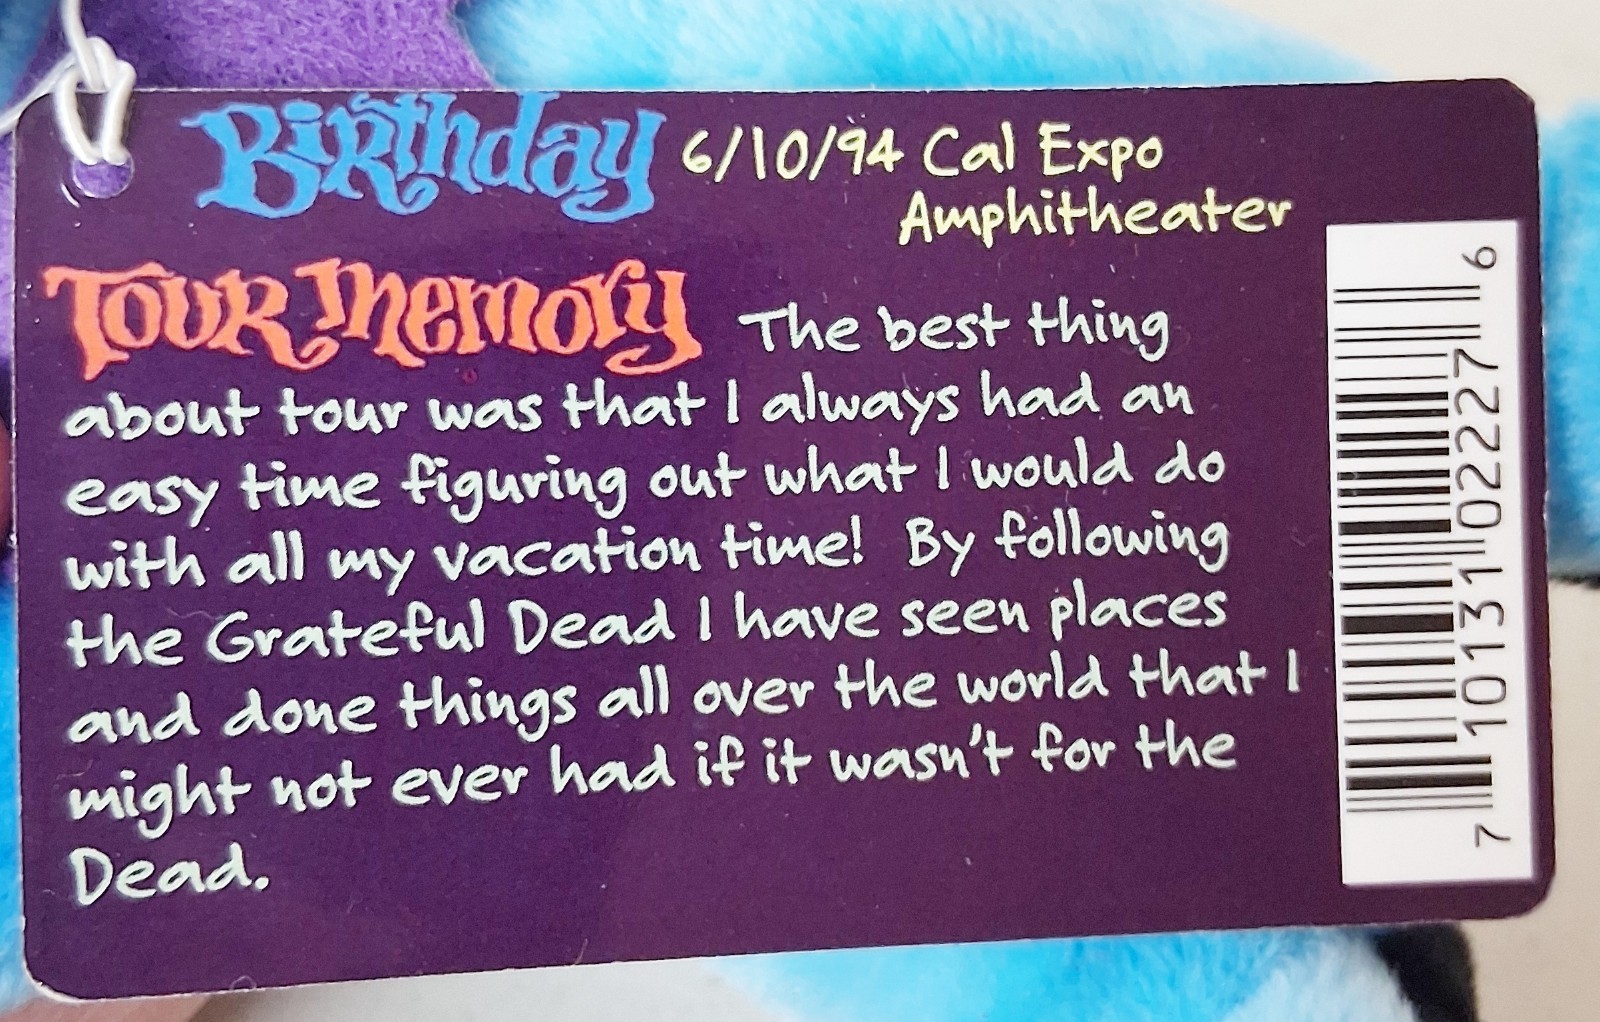 Birthday 6/10/94 Cal Expo
Amphitheater
Tour Memory The best thing
about tour was that I always had an
easy time figuring out what I would do
with all my vacation time! By following
the Grateful Dead I have seen places
and done things all over the world that I
might not ever had if it wasn't for the
Dead.
7 10131 02227 6